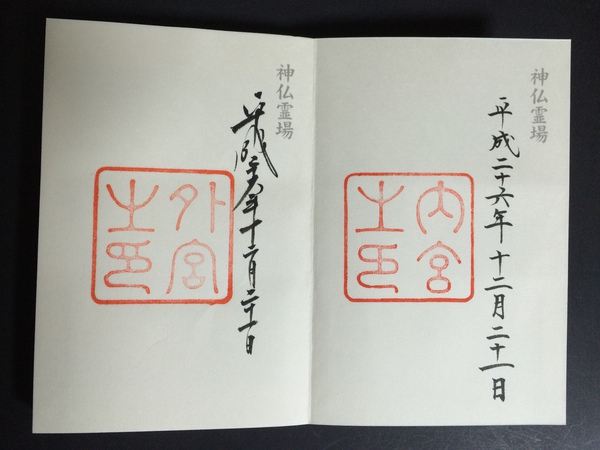 神仏霊場
平成二十六年十二月二十一日
内宮
之印
神仏霊場
平成二十六年十二月二十一日
外宮
之印